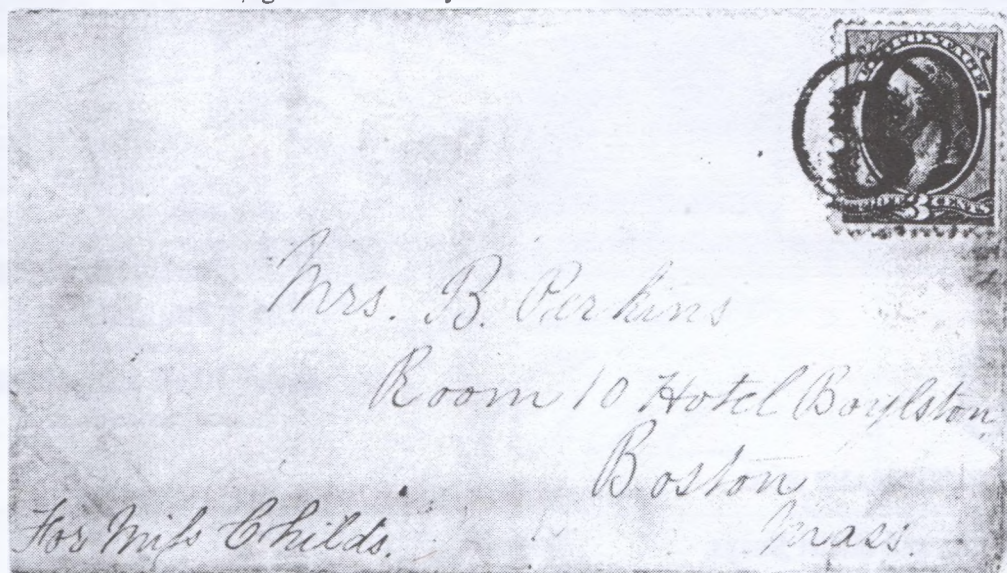 U.S. POSTAGE
3 CENTS
Mrs. B. Perkins
Room 10 Hotel Boylston,
Boston
Mass.
For Miſs Childs.